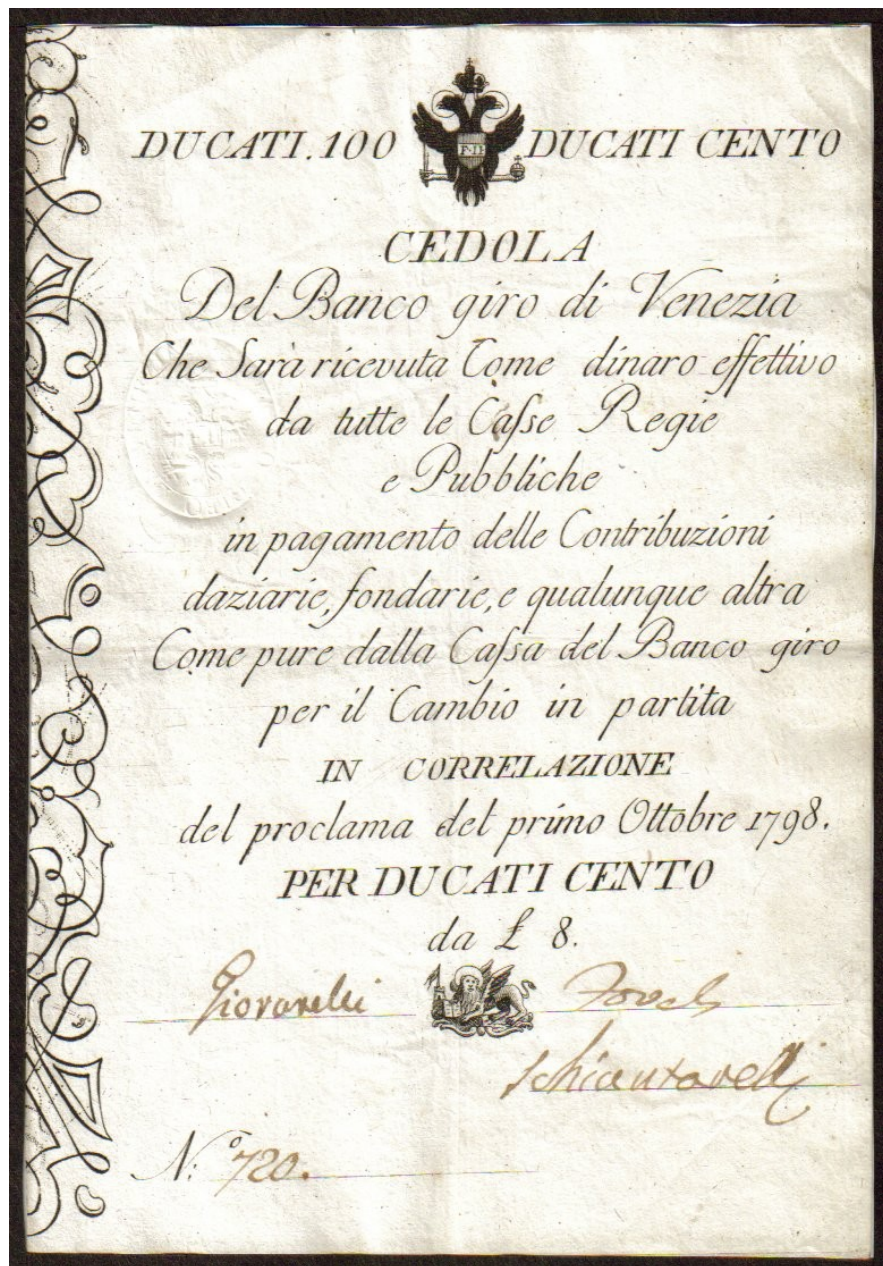 DUCATI. 100 DUCATI CENTO
F·II
CEDOLA
Del Banco giro di Venezia
Che Sarà ricevuta Come dinaro effettivo
da tutte le Caſse Regie
e Pubbliche
in pagamento delle Contribuzioni
daziarie, fondarie, e qualunque altra
Come pure dalla Caſsa del Banco giro
per il Cambio in partita
IN CORRELAZIONE
del proclama del primo Ottobre 1798.
PER DUCATI CENTO
da £ 8.
Giovanelli
Schiantarelli
N:º 720.